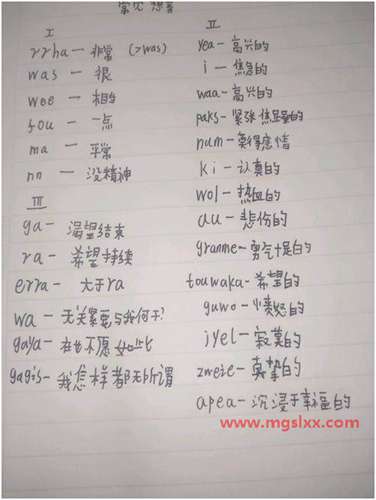 常见 想音
I
rrha — 非常 (>was)
was — 很
wee — 相当
fou — 一点
ma — 平常
nn — 没精神
III
ga — 渴望结束
ra — 希望持续
erra — 大于ra
wa — 无关紧要与我何干?
gaya — 再也不愿如此
gagis — 我怎样都无所谓
II
yea — 高兴的
i — 焦急的
waa — 高兴的
paks — 紧张焦虑的
num — 莫得感情
ki — 认真的
wol — 热血的
au — 悲伤的
granme — 勇气十足的
touwaka — 希望的
guwo — 愤怒的
jyel — 寂寞的
zweie — 真挚的
apea — 沉浸于幸福的
www.mgslxx.com